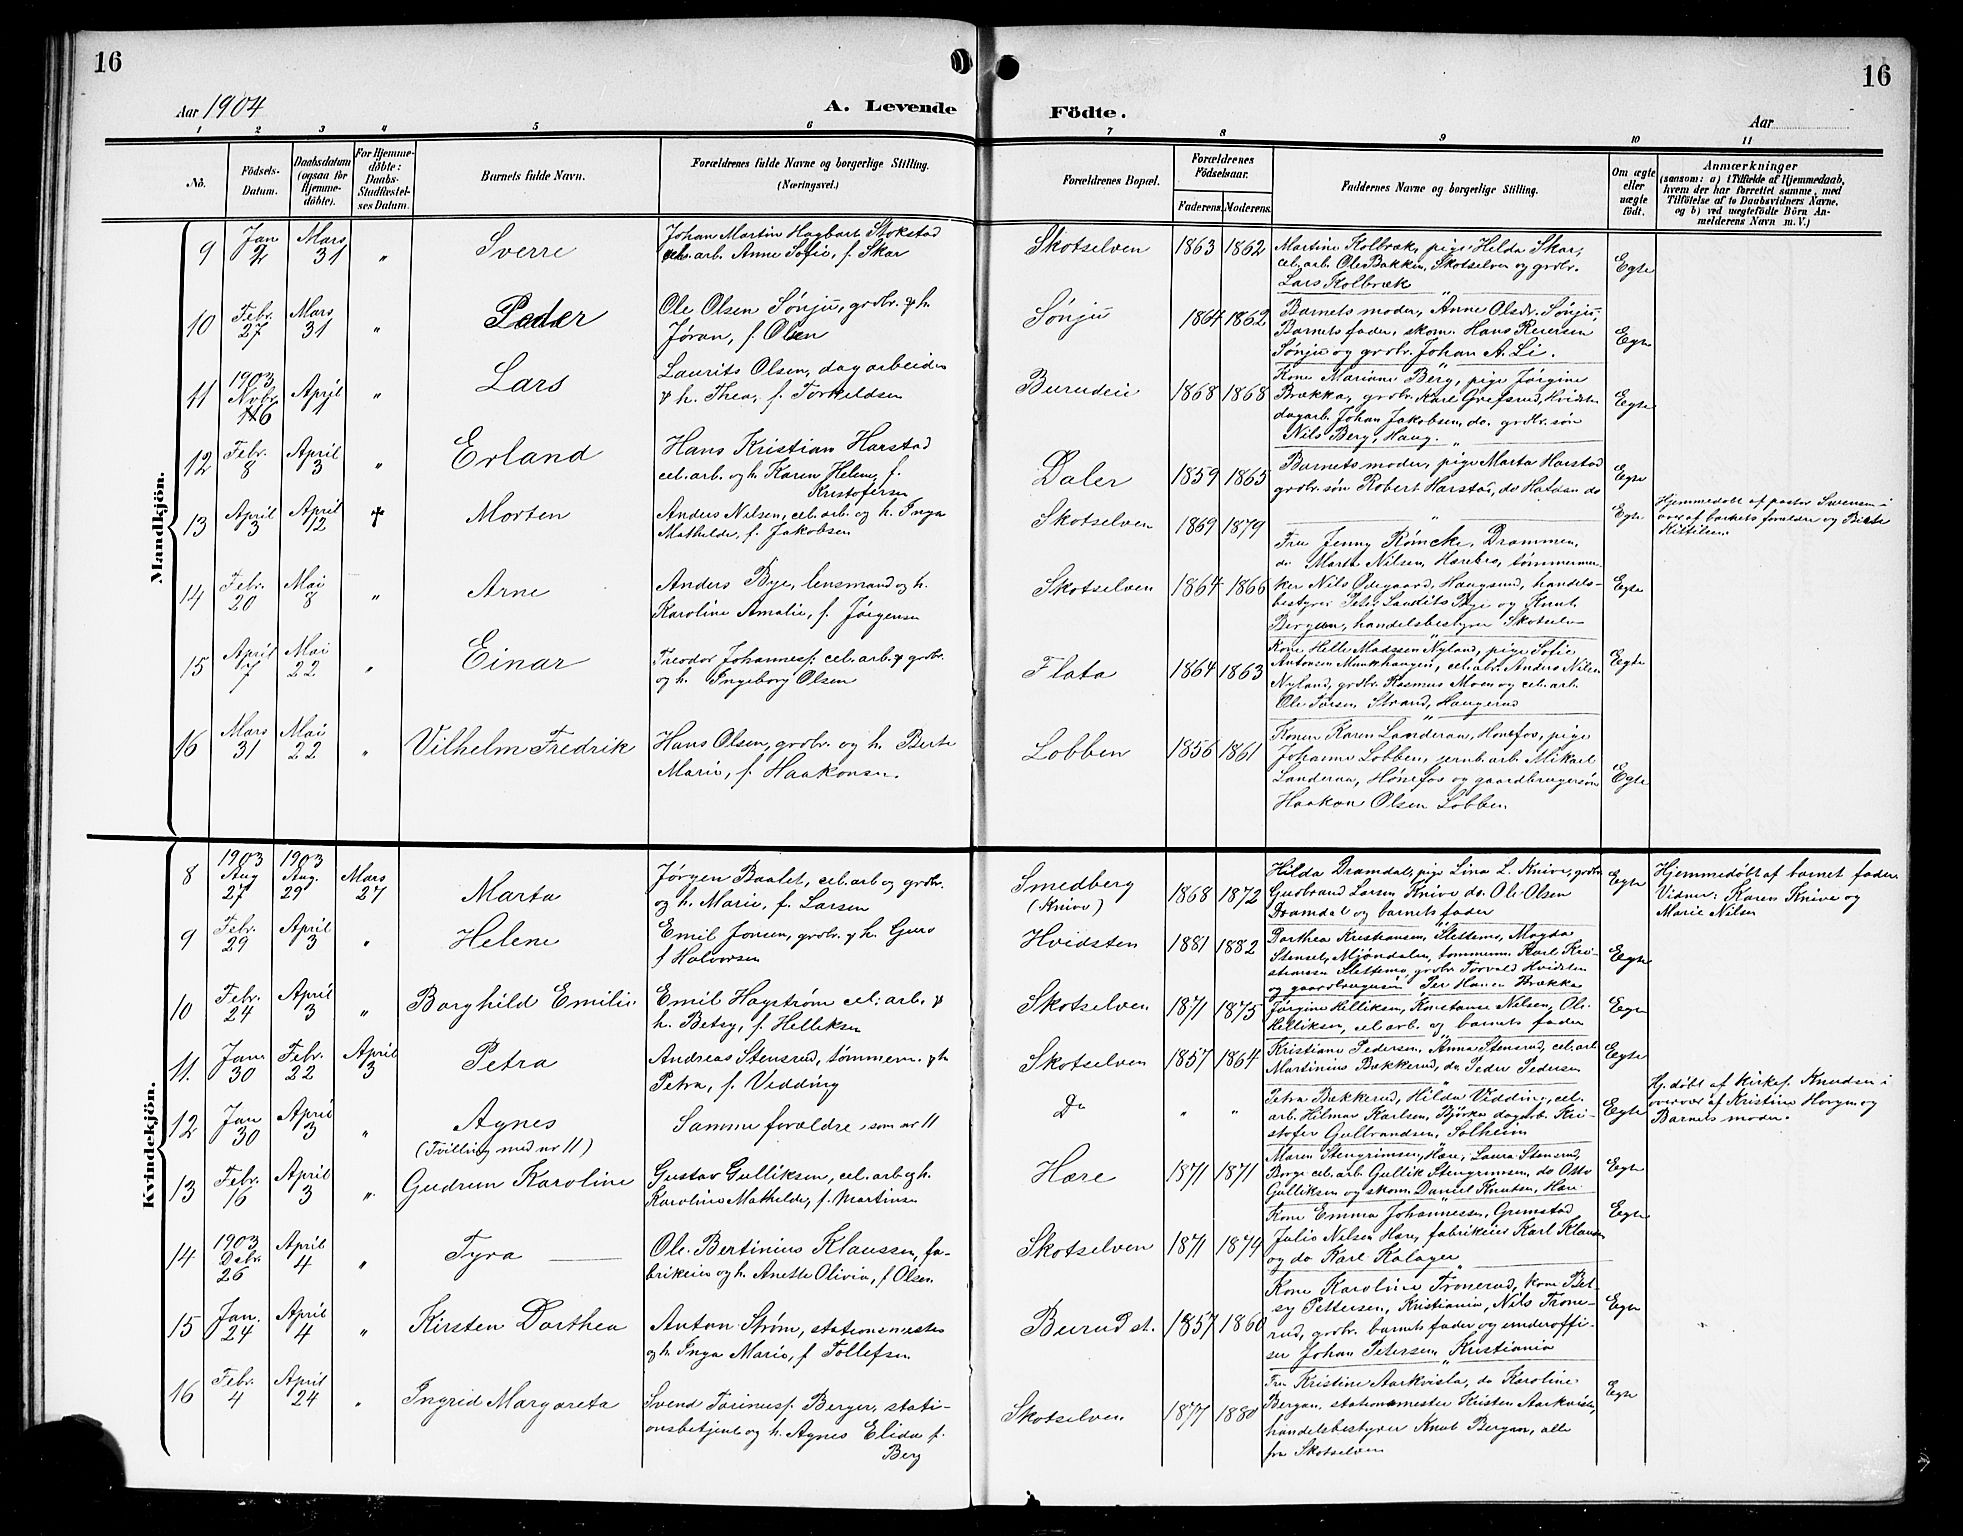 16
16
Aar 1904
A. Levende
Födte.
Aar
1 2 3 4 5 6 7 8 9 10 11
No.
Födsels-Datum.
Daabsdatum (ogsaa for Hjemme-döbte).
For Hjemme-döbte: Daabs-Stadfæstel-ses Datum.
Barnets fulde Navn.
Forældrenes fulde Navne og borgerlige Stilling. (Næringsvei.)
Forældrenes Bopæl.
Forældrenes Födselsaar.
Faderens. Moderens.
Faddernes Navne og borgerlige Stilling.
Om ægte eller uægte födt.
Anmærkninger
(saasom: a) i Tilfælde af Hjemmedaab,
hvem der har forrettet samme, med
Tilföielse af to Daabsvidners Navne,
og b) ved uægtefödte Börn An-
melderens Navn m. V.)
Mandkjön.
9 Jan 2 Mars 31 " Sverre
Johan Martin Hagbart Stokstad
cel. arb. Anne Sofie, f. Skar
Skotselven 1863 1862
Martine Kolbræk, pige Hilda Skar,
cel. arb. Ole Bakken, Skotselven og grdbr.
Lars Kolbræk
Egte
10 Febr. 27 Mars 31 " Peder
Ole Olsen Sønju, grdbr. & h.
Jøran, f. Olsen
Sønju 1864 1862
Barnets moder, Anne Olsdr. Sønju,
Barnets fader, skom. Hans Reiersen
Sønju og grdbr. Johan A. Li.
Egte
11 1903 Nvbr. 16 April "
Lars
Laurits Olsen, dagarbeider
& h. Thea, f. Torkeldsen
Burudeie 1868 1868
Kone Mariane Berg, pige Jørgine
Brækka, grdbr. Karl Grefsrud, Hvidsten
dagarb. Johan Jakobsen, do. grdbr. søn
Nils Berg, Haug.
Egte
12 Febr. 8 April 3 " Erland
Hans Kristian Harstad
cel. arb. og h. Karen Helene, f.
Kristofersen
Daler 1859 1865
Barnets moder, pige Marta Harstad
grdbr. søn Robert Harstad, do Hataas do
Egte
13 April 3 April 12 † Morten
Anders Nilsen, cel. arb. og h. Inga
Mathilde, f. Jakobsen
Skotselven 1869 1879 "
Egte
Hjemmedøbt af pastor Svensen i
overv. af barnets forældre og Berte
Kittilsen.
14 Febr. 20 Mai 8 " Arne
Anders Bye, lensmand og h.
Karoline Amalie, f. Jørgensen
Skotselven 1864 1866
Fru Jenny Rømcke, Drammen,
do Marta Nilsen, Horebro, tømmermer-
ker Nils Ødegaard, Haugsund, handels-
bestyrer Peter Laurits Bye og Knut
Bergan, handelsbestyrer Skotselv
Egte
15 April 7 Mai 22 " Einar
Treodor Johannes. cel. arb. & grdbr.
og h. Ingeborg Olsen
Flata 1864 1863
Kone Helle Madssen Nyland, pige Sofie
Antonsen Munkhaugen, cel. abr. Anders Nilsen
Nyland, grdbr. Rasmus Moen og cel. arb.
Ole Torsen Strand, Haugerud
Egte
16 Mars 31 Mai 22 " Vilhelm Fredrik
Hans Olsen, grdbr. og h. Berte
Marie, f. Haakonsen.
Lobben 1856 1861
Konen Karen Landeraa, Hønefos, pige
Johanne Lobben, jernb. arb. Mikael
Landeraa, Hønefos og gaardbrugersøn
Haakon Olsen Lobben
Egte
Kvindekjön.
8 1903 Aug 27 1903 Aug. 29 Mars 27 Marta
Jørgen Baalet, cel. arb og grdbr.
og h. Marie, f. Larsen
Smedberg
(Knive) 1868 1872
Hilda Dramdal, pige Lina L. Knive, grdbr
Gudbrand Larsen Knive do. Ole Olsen
Dramdal og barnets fader
Egte
Hjemmedøbt af barnet fader
Vidner: Karen Knive og
Marie Nilsen
9 Febr. 29 April 3 " Helene
Emil Jonsen, grdbr. & h. Guro
f Halvorsen
Hvidsten 1881 1882
Dorthea Kristiansen, Slettemo, Magda
Stenset, Mjøndalen, tømmerm. Karl Kri-
stiansen Slettemo, grdbr. Torvald Hvidsten
og gaardbrugersøn Per Hansen Brækka
Egte
10 Febr. 24 April 3 " Borghild Emilie
Emil Hagstrøm cel. arb. &
h. Betsy, f. Helliksen
Skotselven 1871 1875
Jørgine Helliksen, Konstanse Nilsen, Ole
Helliksen, cel. arb. og barnets fader
Egte
11. Jan 30 Febr. 22 April 3 Petra
Andreas Stensrud, tømmerm. & h
Petra, f. Vedding
Skotselven 1857 1864
Kristiane Pedersen, Anna Stensrud, cel. arb
Martinius Bækkerud, do Peder Pedersen
Egte
Hj. døbt af kirkes. Knudsen i
overvær af Kristine Horgen og
Barnets moder.
12 Jan 30 April 3 " Agnes
(Tvilling med nr 11)
Samme forældre, som nr 11
Do " "
Petra Bækkerud, Hilda Vedding, cel.
arb. Hilmar Karlsen, Bjørka dagarb. Kri-
stofer Gulbrandsen, Solheim
Egte
13 Febr. 16 April 3 " Gudrun Karoline
Gustav Gulliksen, cel. arb og h.
Karoline Mathilde, f. Martinsen
Hære 1871 1871
Maren Stengrimsen, Hære, Laura Stensrud,
Borge cel. arb. Gullik Stengrimsen, do Otto
Gulliksen og skom. Daniel Knutsen, Hære
Egte
14 1903 Debr. 26 April 4 " Tyra
Ole Bertinius Klaussen, fa-
brikeier og h. Anette Olivia, f Olsen
Skotselven 1871 1874
Kone Emma Johannessen, Grimstad
Julie Nelsen Hære, fabrikeier Karl Klausen
og do Karl Kalager
Egte
15 Jan. 24 April 4 " Kirsten Dorthea
Anton Strøm, stationsmester
og h. Inga Marie, f Tollefsen
Burud st. 1857 1860
Kone Karoline Tronerud, kone Bet-
sy Pettersen, Kristiania, Nils Trone-
rud, grdbr. barnets fader og underoffi-
ser Johan Petersen, Kristiania
Egte
16 Febr. 4 April 24 " Ingrid Margareta
Svend Torinus. Berger, stati-
onsbetjent og h. Agnes Elida f.
Berg
Skotselven 1877 1880
Fru Kristine Aarkvisla, do Karoline
Bergan, stationsmester Kristen Aarkvisla,
handelsbestyrer Knut Bergan, alle
fra Skotselven
Egte